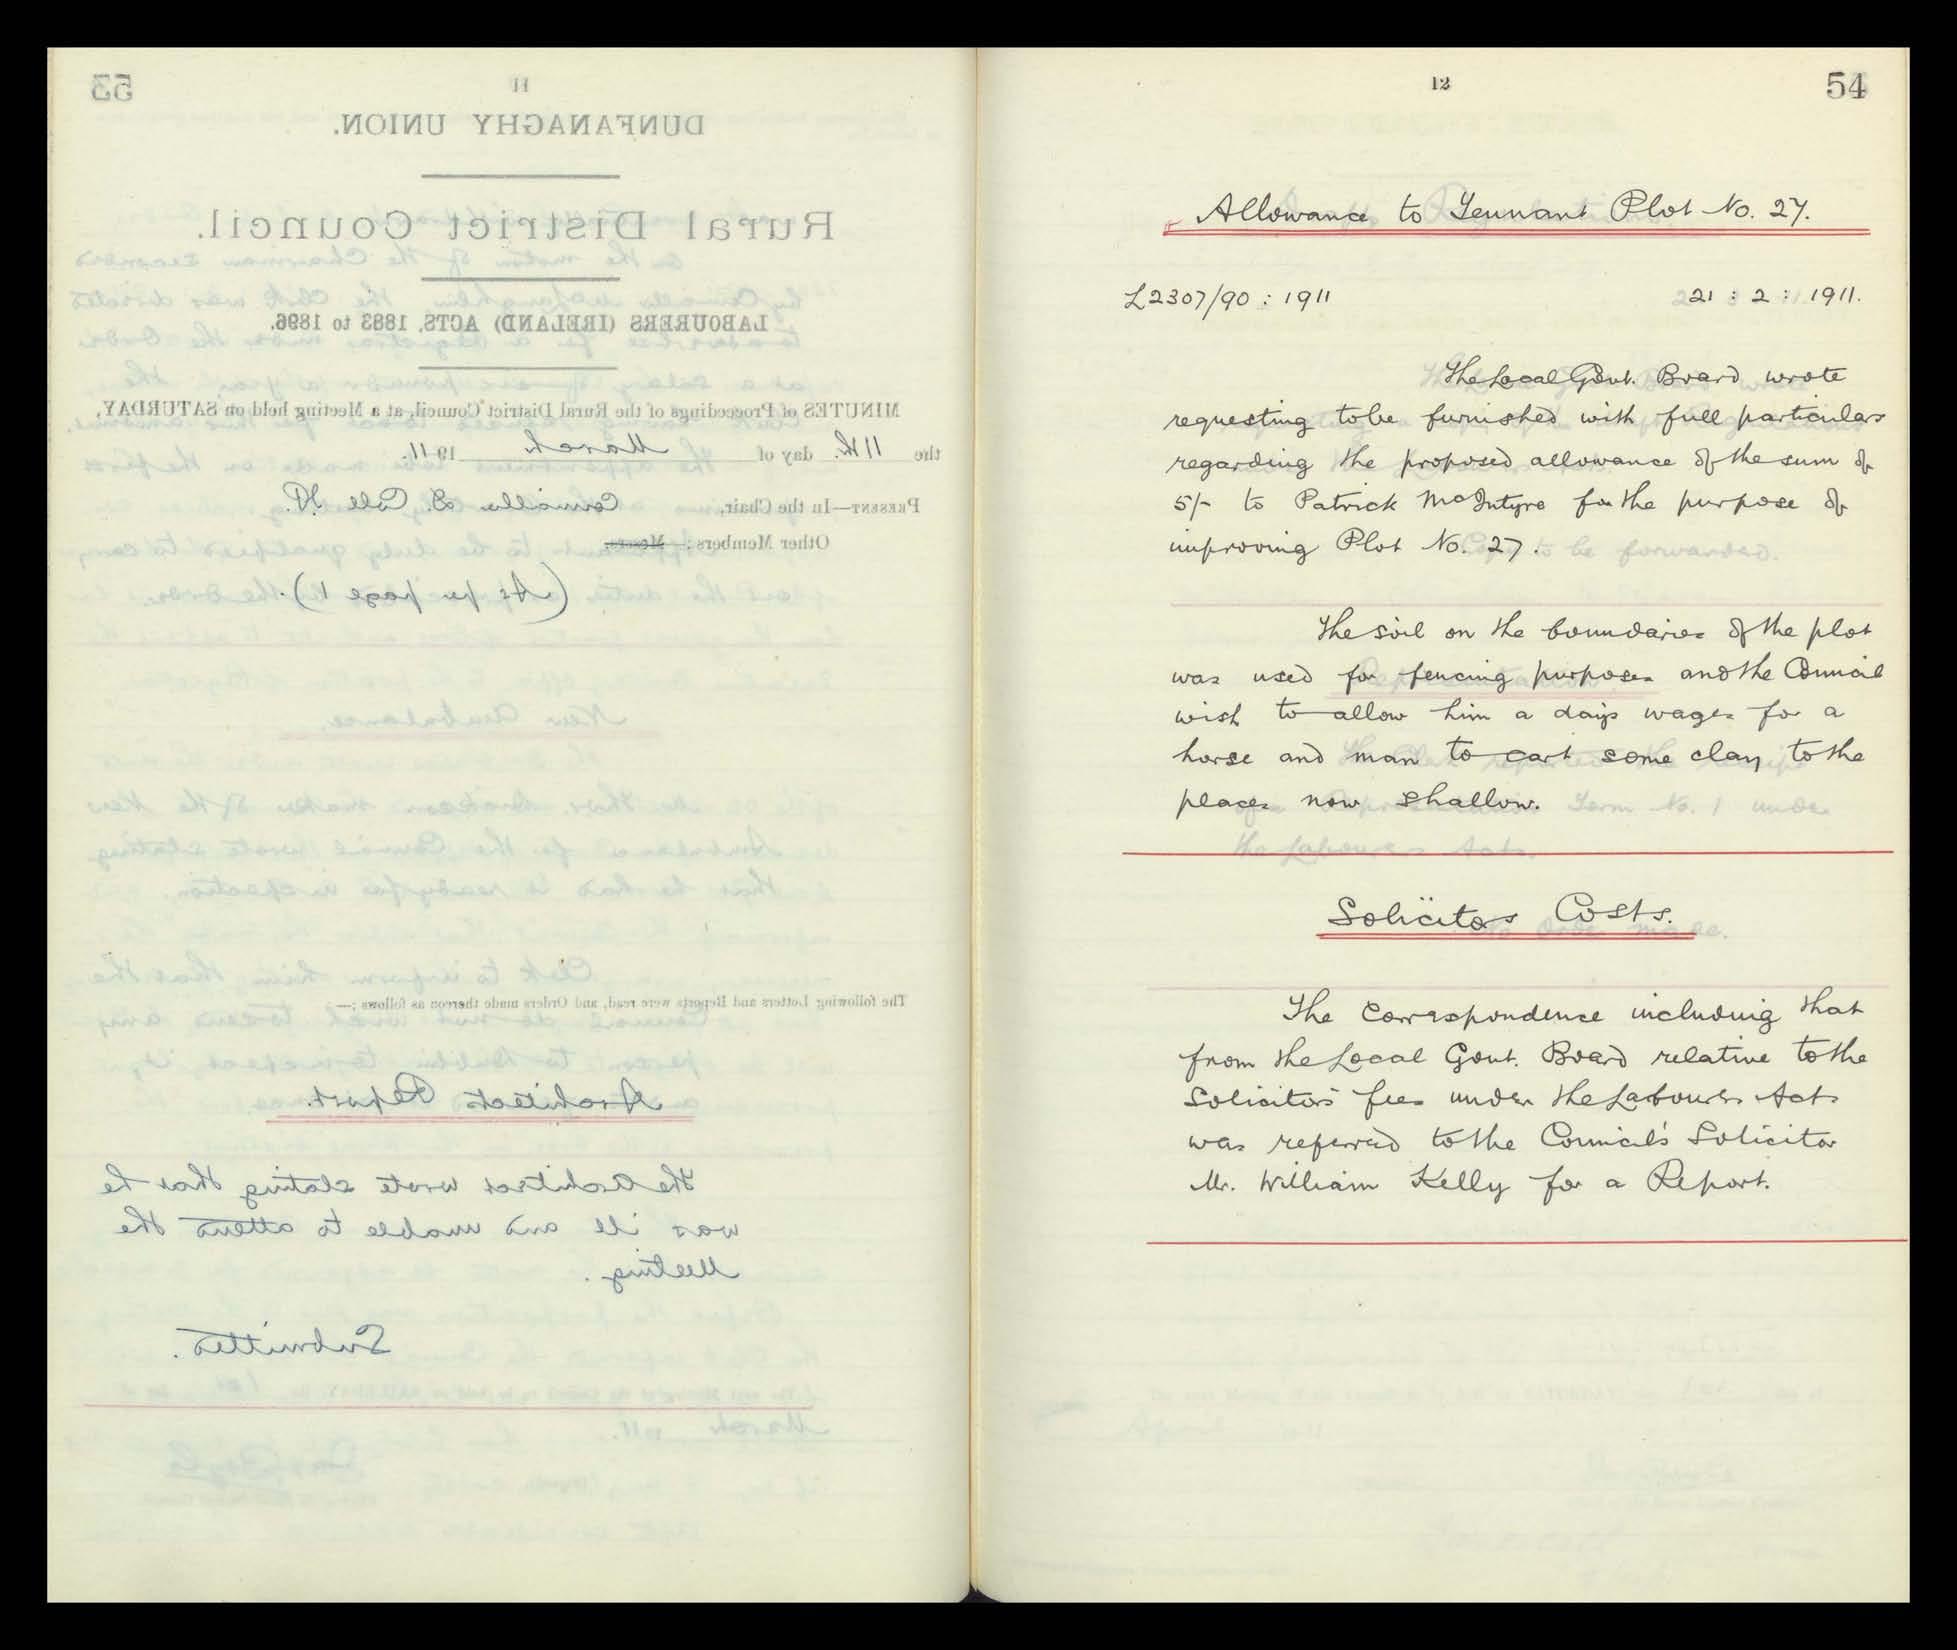 53
11
DUNFANAGHY UNION.
Rural District Council.
LABOURERS (IRELAND) ACTS, 1883 to 1896.
MINUTES of Proceedings of the Rural District Council, at a Meeting held on SATURDAY,
the 11th. day of March 1911.
PRESENT—In the Chair, Councillor D. Coll
Other Members: Messrs.
(As per page 1).
The following Letters and Reports were read, and Orders made thereon as follows:—
Architects Report.
The Architect wrote stating that he
was ill and unable to attend the
Meeting.
Submitted.
12
54
Allowance to Tennant Plot No. 27.
L2307/90 : 1911 21 : 2 : 1911.
The Local Govt. Board wrote
requesting to be furnished with full particulars
regarding the proposed allowance of the sum of
5/- to Patrick McIntyre for the purpose of
improving Plot No. 27.
The soil on the boundaries of the plot
was used for fencing purposes and the Council
wish to allow him a days wages for a
horse and man to cart some clay to the
places now shallow.
Solicitors Costs.
The Correspondence including that
from the Local Govt. Board relative to the
Solicitors fees under the Labourers Acts
was referred to the Council's Solicitor
Mr. William Kelly for a Report.